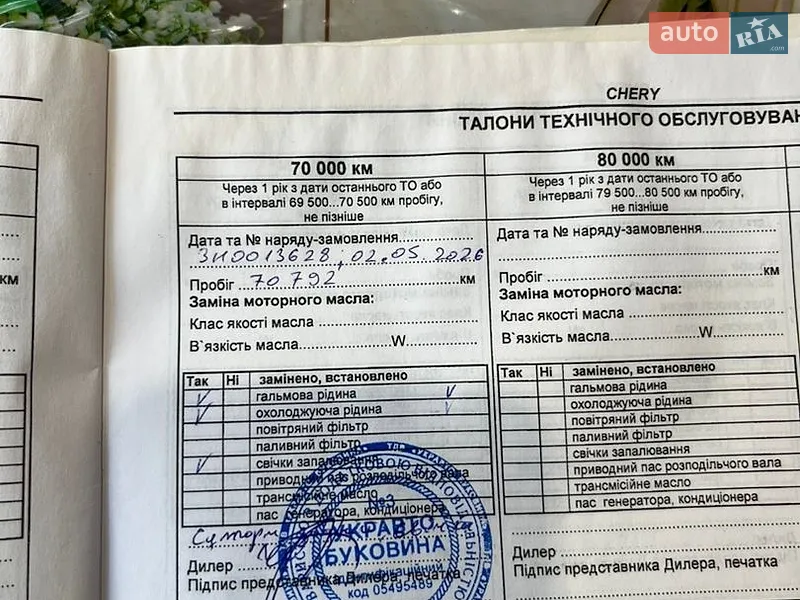 auto RIA .com
CHERY
ТАЛОНИ ТЕХНІЧНОГО ОБСЛУГОВУВАН
70 000 км
Через 1 рік з дати останнього ТО або
в інтервалі 69 500...70 500 км пробігу,
не пізніше
Дата та № наряду-замовлення
ЗН0013628, 02.05.2026
Пробіг 70 792 км
Заміна моторного масла:
Клас якості масла
В`язкість масла W
Так Ні замінено, встановлено
гальмова рідина
охолоджуюча рідина
повітряний фільтр
паливний фільтр
свічки запалювання
приводний пас розподільчого вала
трансмісійне масло
пас генератора, кондиціонера
Дилер
Підпис представника Дилера, печатка
№3
УКРАВТО
БУКОВИНА
Ідентифікаційний
код 05495489
80 000 км
Через 1 рік з дати останнього ТО або
в інтервалі 79 500...80 500 км пробігу,
не пізніше
Дата та № наряду-замовлення
Пробіг км
Заміна моторного масла:
Клас якості масла
В`язкість масла W
Так Ні замінено, встановлено
гальмова рідина
охолоджуюча рідина
повітряний фільтр
паливний фільтр
свічки запалювання
приводний пас розподільчого вала
трансмісійне масло
пас генератора, кондиціонера
Дилер
Підпис представника Дилера, печатка
км